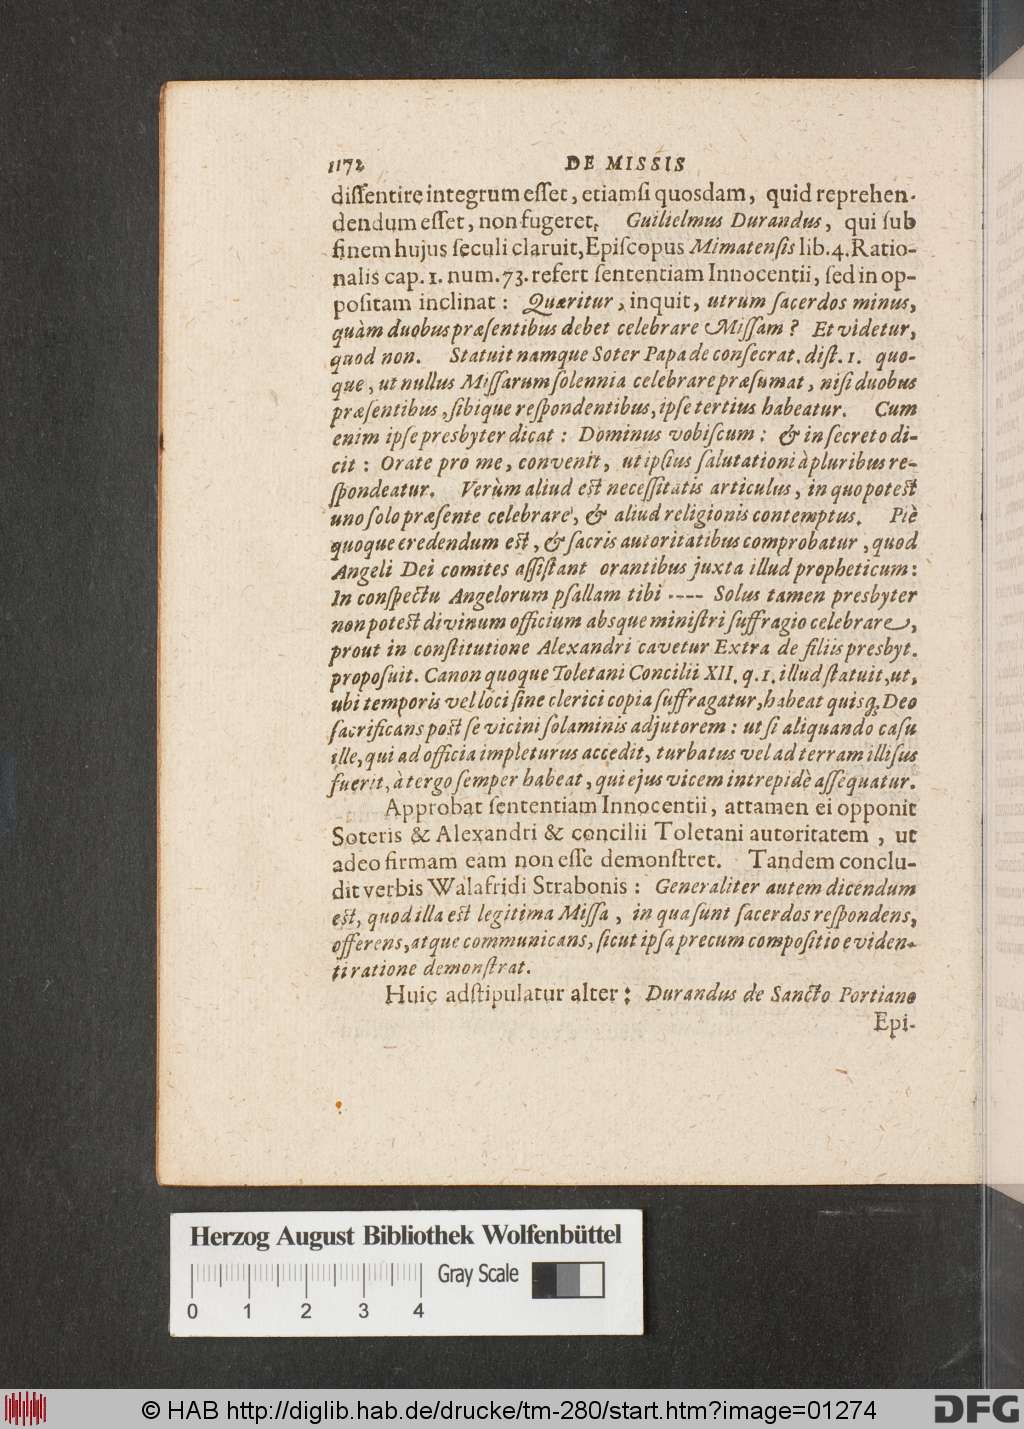 1172 DE MISSIS
diſſentire integrum eſſet, etiamſi quosdam, quid reprehen-
dendum eſſet, non fugeret. Guilielmus Durandus, qui ſub
finem hujus ſeculi claruit, Epiſcopus Mimatenſis lib. 4. Ratio-
nalis cap. 1. num. 73. refert ſententiam Innocentii, ſed in op-
poſitam inclinat: Quæritur, inquit, utrum ſacerdos minus,
quàm duobus præſentibus debet celebrare Miſſam? Et videtur,
quod non. Statuit namque Soter Papa de conſecrat. diſt. 1. quo-
que, ut nullus Miſſarum ſolennia celebrare præſumat, niſi duobus
præſentibus, ſibique reſpondentibus, ipſe tertius habeatur. Cum
enim ipſe presbyter dicat: Dominus vobiſcum: & in ſecreto di-
cit: Orate pro me, convenit, ut ipſius ſalutationi à pluribus re-
ſpondeatur. Verùm aliud eſt neceſſitatis articulus, in quo poteſt
uno ſolo præſente celebrare, & aliud religionis contemptus. Piè
quoque credendum eſt, & ſacris autoritatibus comprobatur, quod
Angeli Dei comites aſſiſtant orantibus juxta illud propheticum:
In conſpectu Angelorum pſallam tibi ---- Solus tamen presbyter
non poteſt divinum officium absque miniſtri ſuffragio celebrare,
prout in conſtitutione Alexandri cavetur Extra de filiis presbyt.
propoſuit. Canon quoque Toletani Concilii XII. q. 1. illud ſtatuit, ut,
ubi temporis vel loci ſine clerici copia ſuffragatur, habeat quisq; Deo
ſacrificans poſt ſe vicini ſolaminis adjutorem: ut ſi aliquando caſu
ille, qui ad officia impleturus accedit, turbatus vel ad terram illiſus
fuerit, à tergo ſemper habeat, qui ejus vicem intrepidè aſſequatur.
Approbat ſententiam Innocentii, attamen ei opponit
Soteris & Alexandri & concilii Toletani autoritatem, ut
adeo firmam eam non eſſe demonſtret. Tandem conclu-
dit verbis Walafridi Strabonis: Generaliter autem dicendum
eſt, quod illa eſt legitima Miſſa, in qua ſunt ſacerdos reſpondens,
offerens, atque communicans, ſicut ipſa precum compoſitio eviden-
ti ratione demonſtrat.
Huic adſtipulatur alter: Durandus de Sancto Portiano
Epi-
Herzog August Bibliothek Wolfenbüttel
Gray Scale
0 1 2 3 4
© HAB http://diglib.hab.de/drucke/tm-280/start.htm?image=01274
DFG